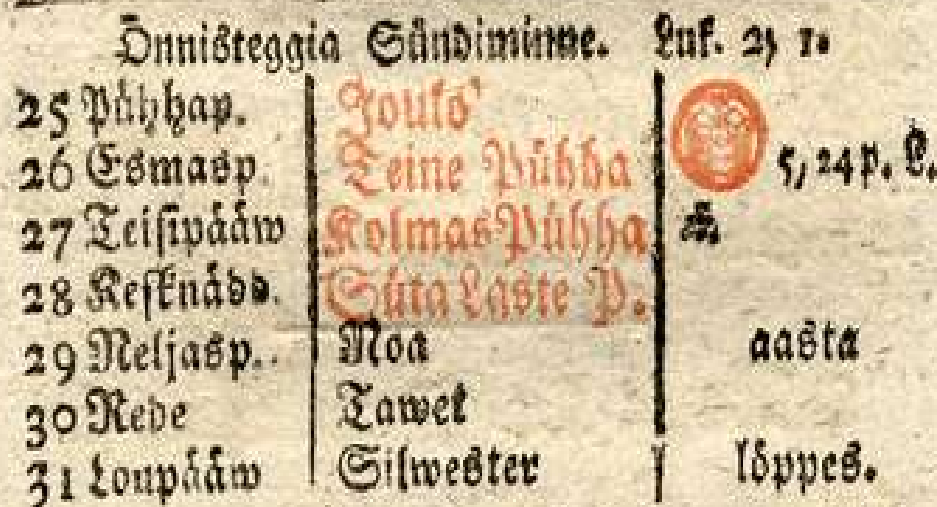 Önnisteggia Sündiminne. Luk. 2, 1.
25 Pühhap. Joulo'
26 Esmasp. Teine Pühha 5, 24 p. L.
27 Teisipääw Kolmas Pühha
28 Kesknädd. Süta Laste P.
29 Neljasp. Noa aasta
30 Rede Tawet
31 Loupääw Silwester löppes.